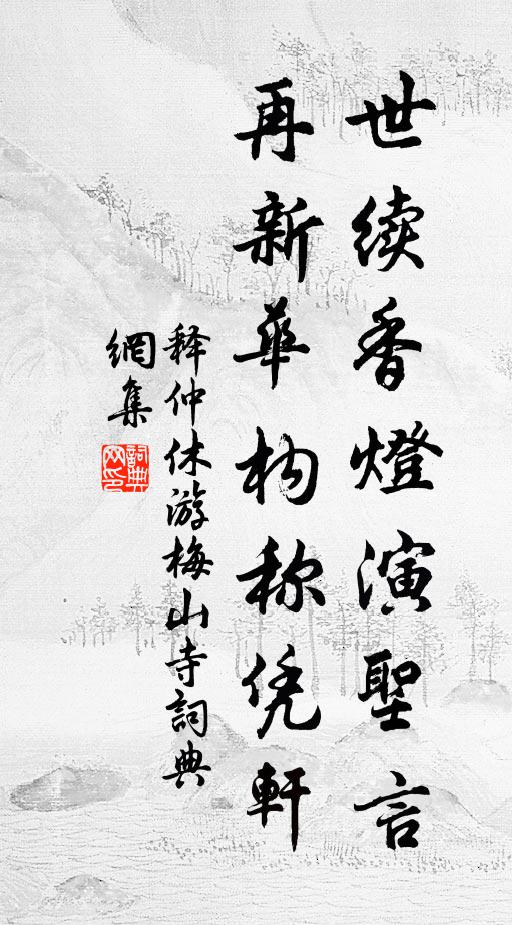 世续香燈演聖言
再新華构称凭軒
释仲休游梅山寺詞典
網集
詞典网印